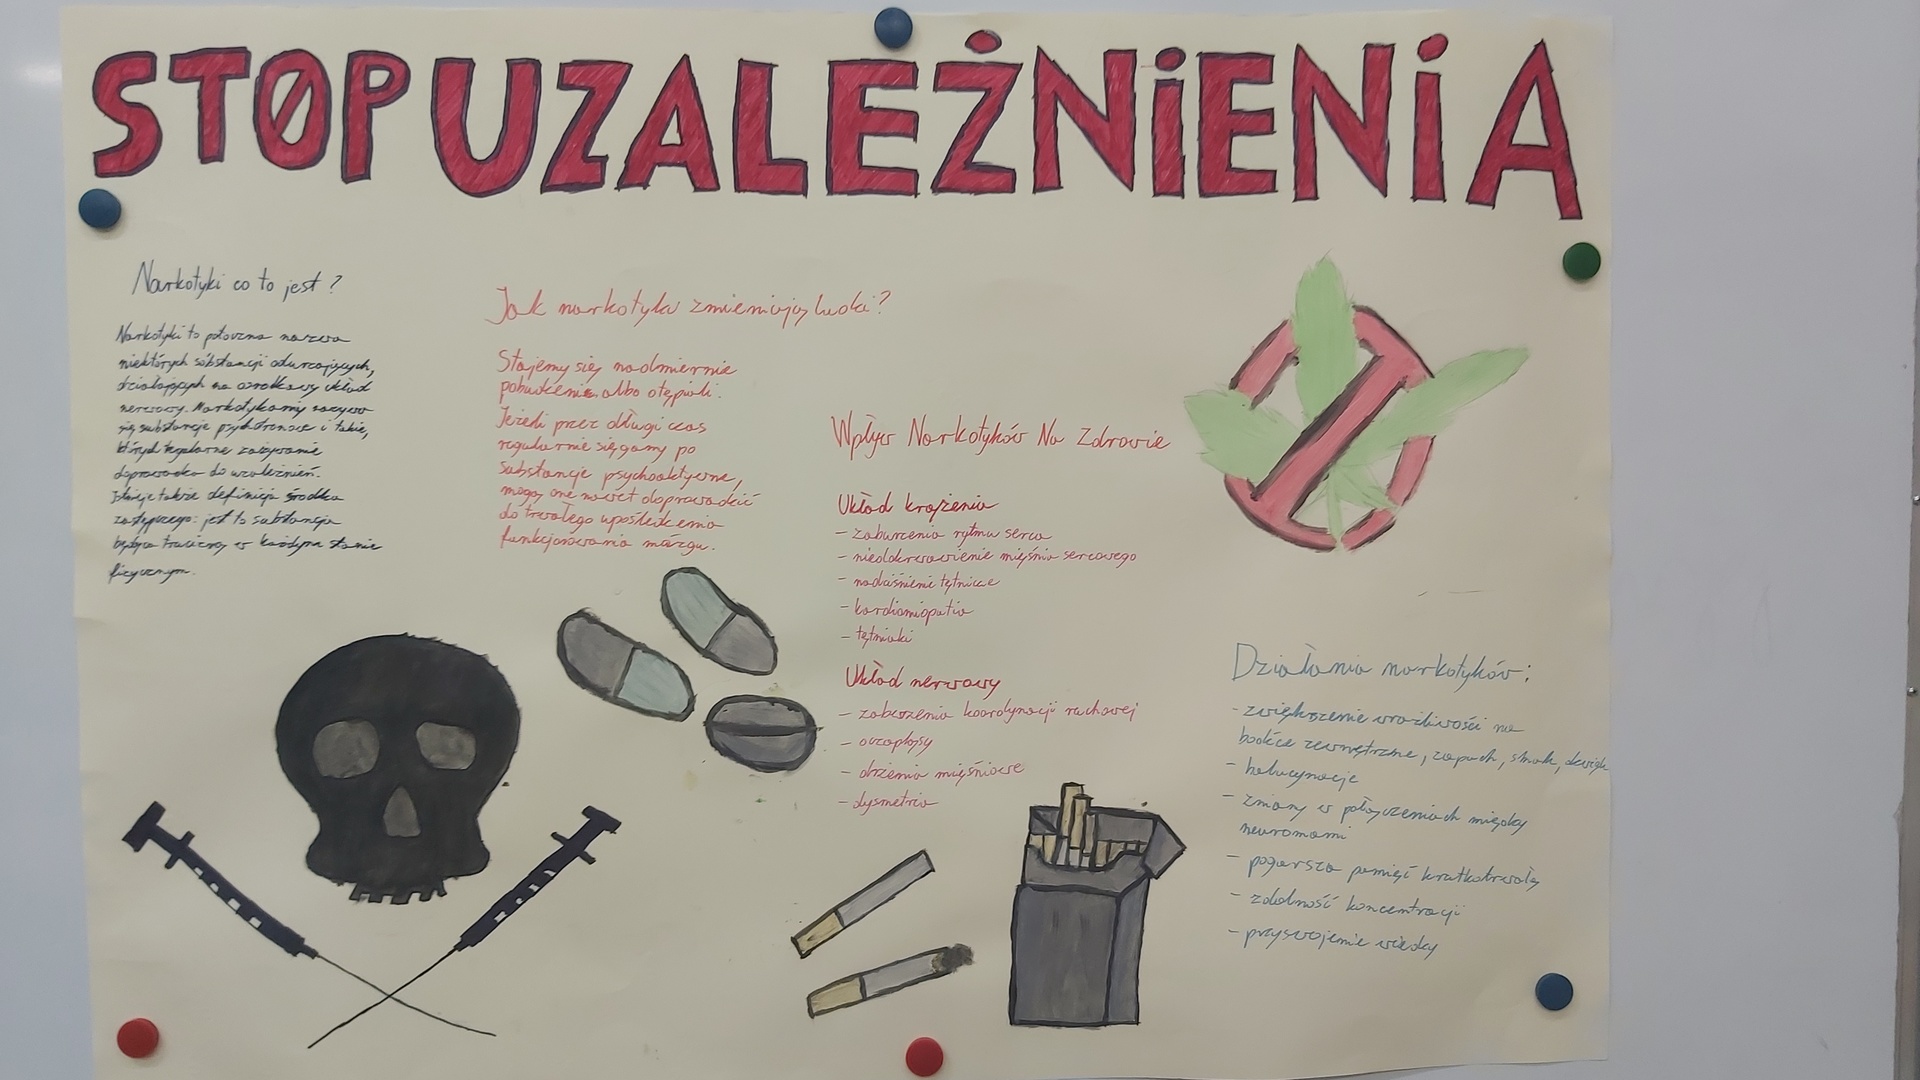 STOP UZALEŻNIENIA
Narkotyki co to jest?
Narkotyki to potoczna nazwa
niektórych substancji odurzających,
działających na ośrodkowy układ
nerwowy. Narkotykami nazywa
się substancje psychotropowe i takie,
których regularne zażywanie
doprowadza do uzależnień.
Istnieje także definicja środka
zastępczego: jest to substancja
będąca trucizną w każdym stanie
fizycznym.
Jak narkotyki zmieniają ludzi?
Stajemy się nadmiernie
pobudzeni albo otępiali.
Jeżeli przez długi czas
regularnie sięgamy po
substancje psychoaktywne,
mogą one nawet doprowadzić
do trwałego upośledzenia
funkcjonowania mózgu.
Wpływ Narkotyków Na Zdrowie
Układ krążenia
- zaburzenia rytmu serca
- niedokrwienie mięśnia sercowego
- nadciśnienie tętnicze
- kardiomiopatia
- tętniaki
Układ nerwowy
- zaburzenia koordynacji ruchowej
- oczopląsy
- drżenia mięśniowe
- dysmetria
Działania narkotyków:
- zwiększenie wrażliwości na
bodźce zewnętrzne, zapach, smak, dźwięk
- halucynacje
- zmiany w połączeniach między
neuronami
- pogarsza pamięć krótkotrwałą
- zdolność koncentracji
- przyswojenie wiedzy